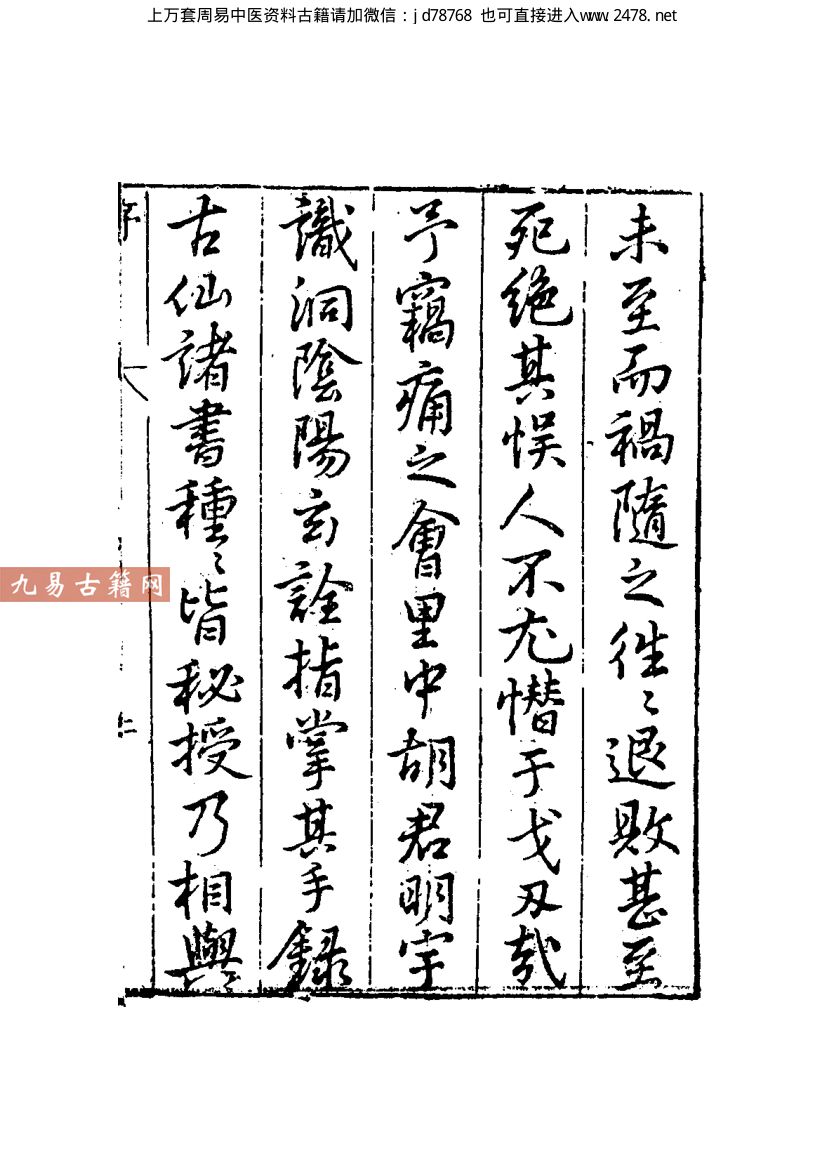 上万套周易中医资料古籍请加微信：jd78768 也可直接进入www.2478.net
未至而禍隨之徃〻退敗甚至
死絕其悮人不尤憯于戈刃㦲
予竊痛之會里中胡君明宇
識洞陰陽玄詮指掌其手錄
古仙諸書種〻皆秘授乃相與
九易古籍网